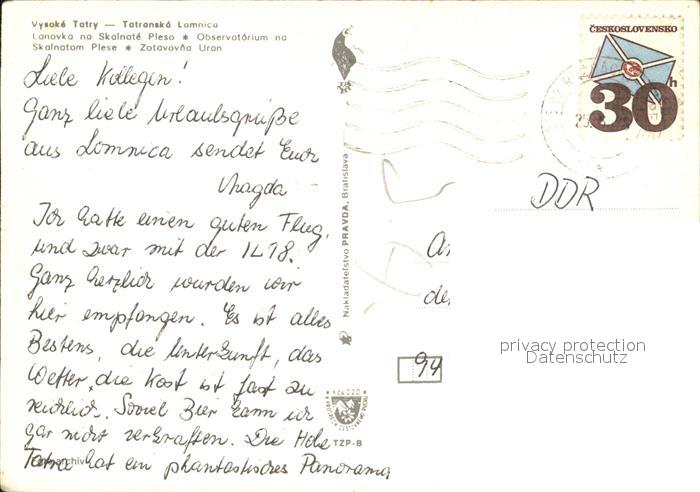 Vysoké Tatry — Tatranská Lomnica
Lanovka na Skalnaté Pleso ✱ Observatórium na
Skalnatom Plese ✱ Zotavovňa Uran
Liebe Kollegen!
Ganz liebe Urlaubsgrüße
aus Lomnica sendet Euch
Magda
Ich hatte einen guten Flug,
und zwar mit der IL 18.
Ganz herzlich wurden wir
hier empfangen. Es ist alles
Bestens, die Unterkunft, das
Wetter, die Kost ist fast zu
reichlich. Soviel Bier kann ich
gar nicht verkraften. Die Hohe
Tatra hat ein phantastisches Panorama
Nakladateľstvo PRAVDA, Bratislava
ČESKOSLOVENSKO
30 h
DDR
An
de
94
privacy protection
Datenschutz
Kčs 020
TZP-B